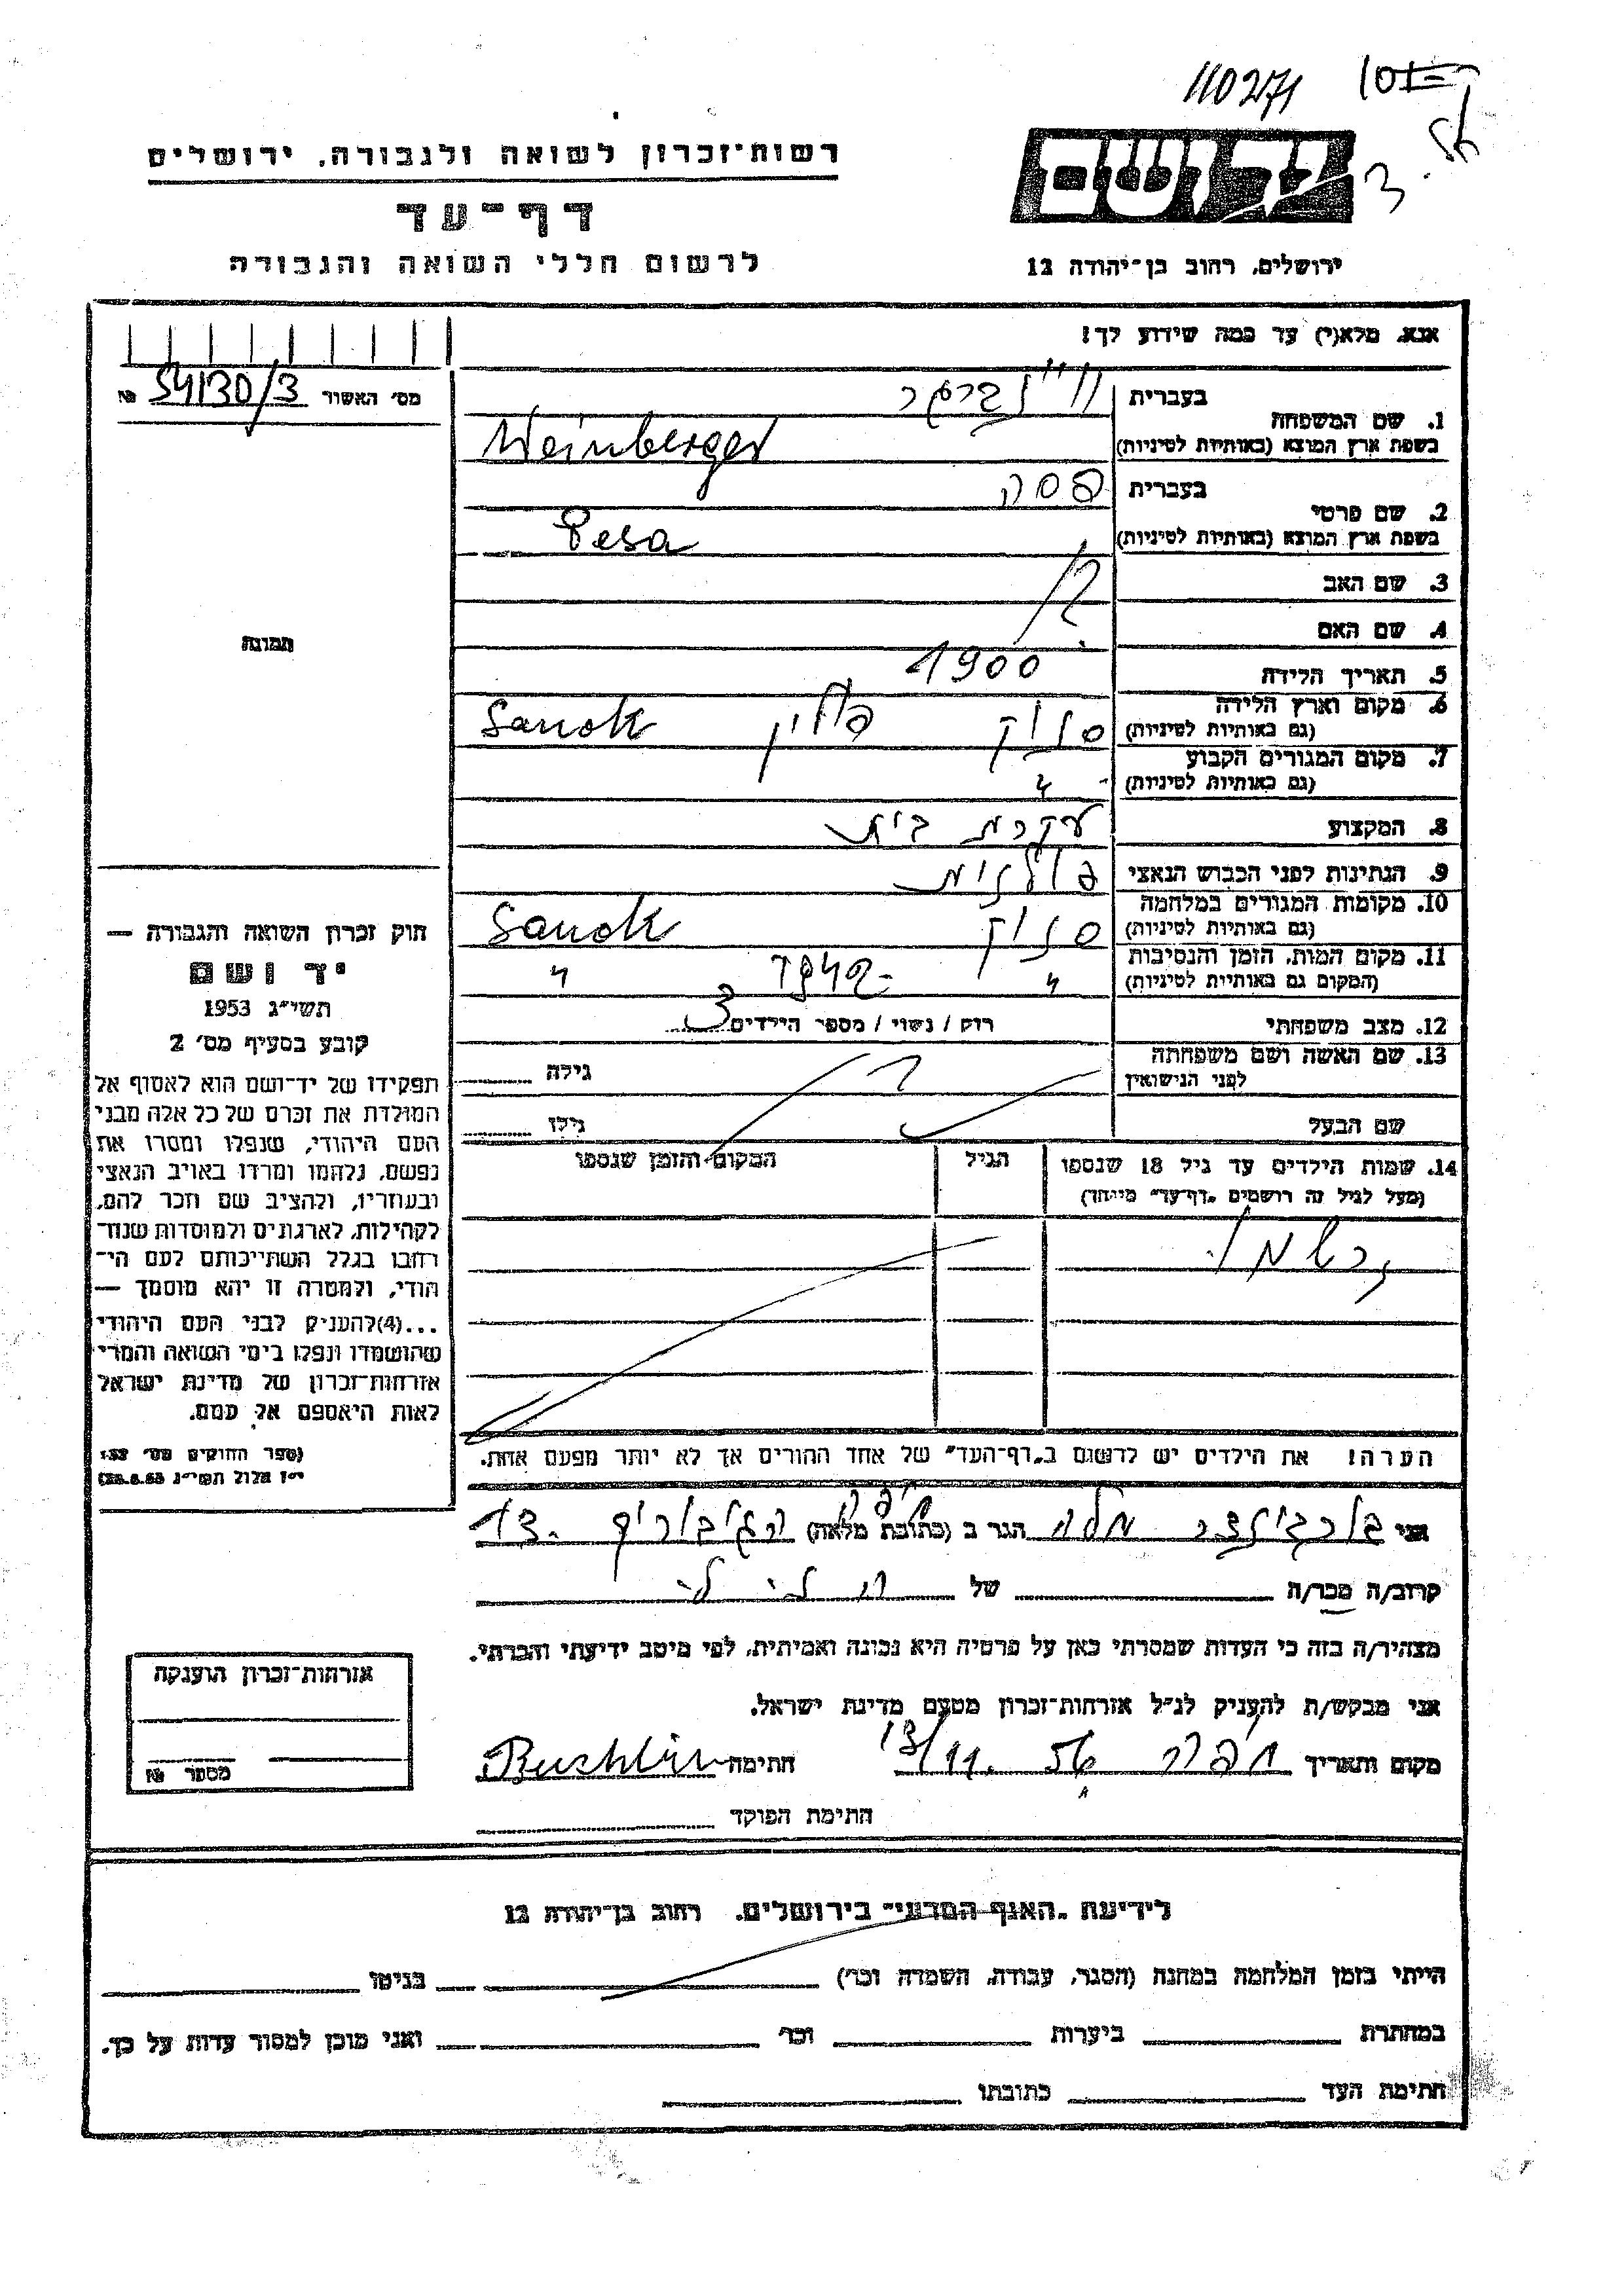 110271
רשות־זכרון לשואה ולגבורה, ירושלים
יד ושם
דף־עד
לרשום חללי השואה והגבורה
ירושלים, רחוב בן־יהודה 12
אנא, מלא(י) עד כמה שידוע לך!
מס׳ האשור 54130/3 №
1. שם המשפחה
בעברית ויינברגר
בשפת ארץ המוצא (באותיות לטיניות) Weinberger
2. שם פרטי
בעברית פסה
בשפת ארץ המוצא (באותיות לטיניות) Pesa
3. שם האב
4. שם האם
תמונה
5. תאריך הלידה 1900
6. מקום וארץ הלידה
(גם באותיות לטיניות) סנוק פולין Sanok
7. מקום המגורים הקבוע
(גם באותיות לטיניות) "
8. המקצוע עקרת בית
9. הנתינות לפני הכבוש הנאצי פולנית
10. מקומות המגורים במלחמה
(גם באותיות לטיניות) סנוק Sanok
11. מקום המות, הזמן והנסיבות
(המקום גם באותיות לטיניות) " 1942 "
12. מצב משפחתי רווק / נשוי / מספר הילדים 3
13. שם האשה ושם משפחתה
לפני הנישואין גילה
שם הבעל גילו
14. שמות הילדים עד גיל 18 שנספו
(מעל לגיל זה רושמים „דף־עד״ מיוחד)
הגיל
המקום והזמן שנספו
הערה! את הילדים יש לרשום ב„דף־העד״ של אחד ההורים אך לא יותר מפעם אחת.
חוק זכרון השואה והגבורה —
יד ושם
תשי״ג 1953
קובע בסעיף מס׳ 2
תפקידו של יד־ושם הוא לאסוף אל
המולדת את זכרם של כל אלה מבני
העם היהודי, שנפלו ומסרו את
נפשם, נלחמו ומרדו באויב הנאצי
ובעוזריו, ולהציב שם וזכר להם,
לקהילות, לארגונים ולמוסדות שנח־
רבו בגלל השתייכותם לעם הי־
הודי, ולמטרה זו יהא מוסמך —
...(4)להעניק לבני העם היהודי
שהושמדו ונפלו בימי השואה והמרי
אזרחות־זכרון של מדינת ישראל
לאות היאספם אל עמם.
(ספר החוקים מס׳ 132
י״ז אלול תשי״ג 28.8.53)
אני הגר ב (כתובת מלאה) חיפה הגיבורים 13.
קרוב/ה מכר/ה של
מצהיר/ה בזה כי העדות שמסרתי כאן על פרטיה היא נכונה ואמיתית, לפי מיטב ידיעתי והכרתי.
אני מבקש/ת להעניק לנ״ל אזרחות־זכרון מטעם מדינת ישראל.
מקום ותאריך חיפה 13/11. 56 חתימה
חתימת הפוקד
אזרחות־זכרון הוענקה
מספר №
לידיעת „האגף המדעי״ בירושלים, רחוב בן־יהודה 12
הייתי בזמן המלחמה במחנה (הסגר, עבודה, השמדה וכו׳) בגיטו
במחתרת ביערות וכו׳ ואני מוכן למסור עדות על כך.
חתימת העד כתובתו